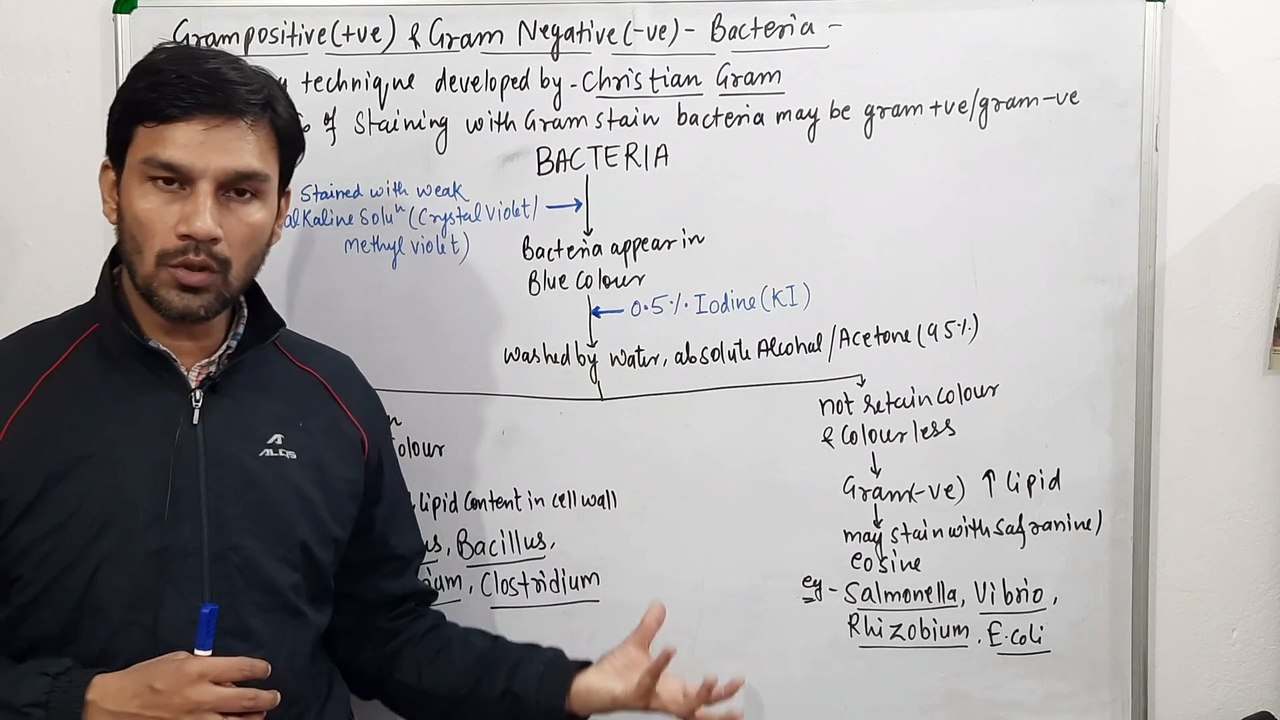 Grampositive(+ve) & Gram Negative(-ve)- Bacteria-
technique developed by - Christian Gram
of Staining with Gram stain bacteria may be gram +ve/gram-ve
BACTERIA
Stained with weak
alkaline Soluⁿ (Crystal Violet/
Methyl violet)
Bacteria appear in
Blue Colour
0.5% Iodine (KI)
Washed by water, absolute Alcohal/Acetone (95%)
olour
Lipid Content in cell wall
us, Bacillus,
ium, Clostridium
not retain colour
& Colourless
Gram(-ve) ↑ lipid
may stain with Safranine/
eosine
eg - Salmonella, Vibrio,
Rhizobium, E.coli
ALCIS